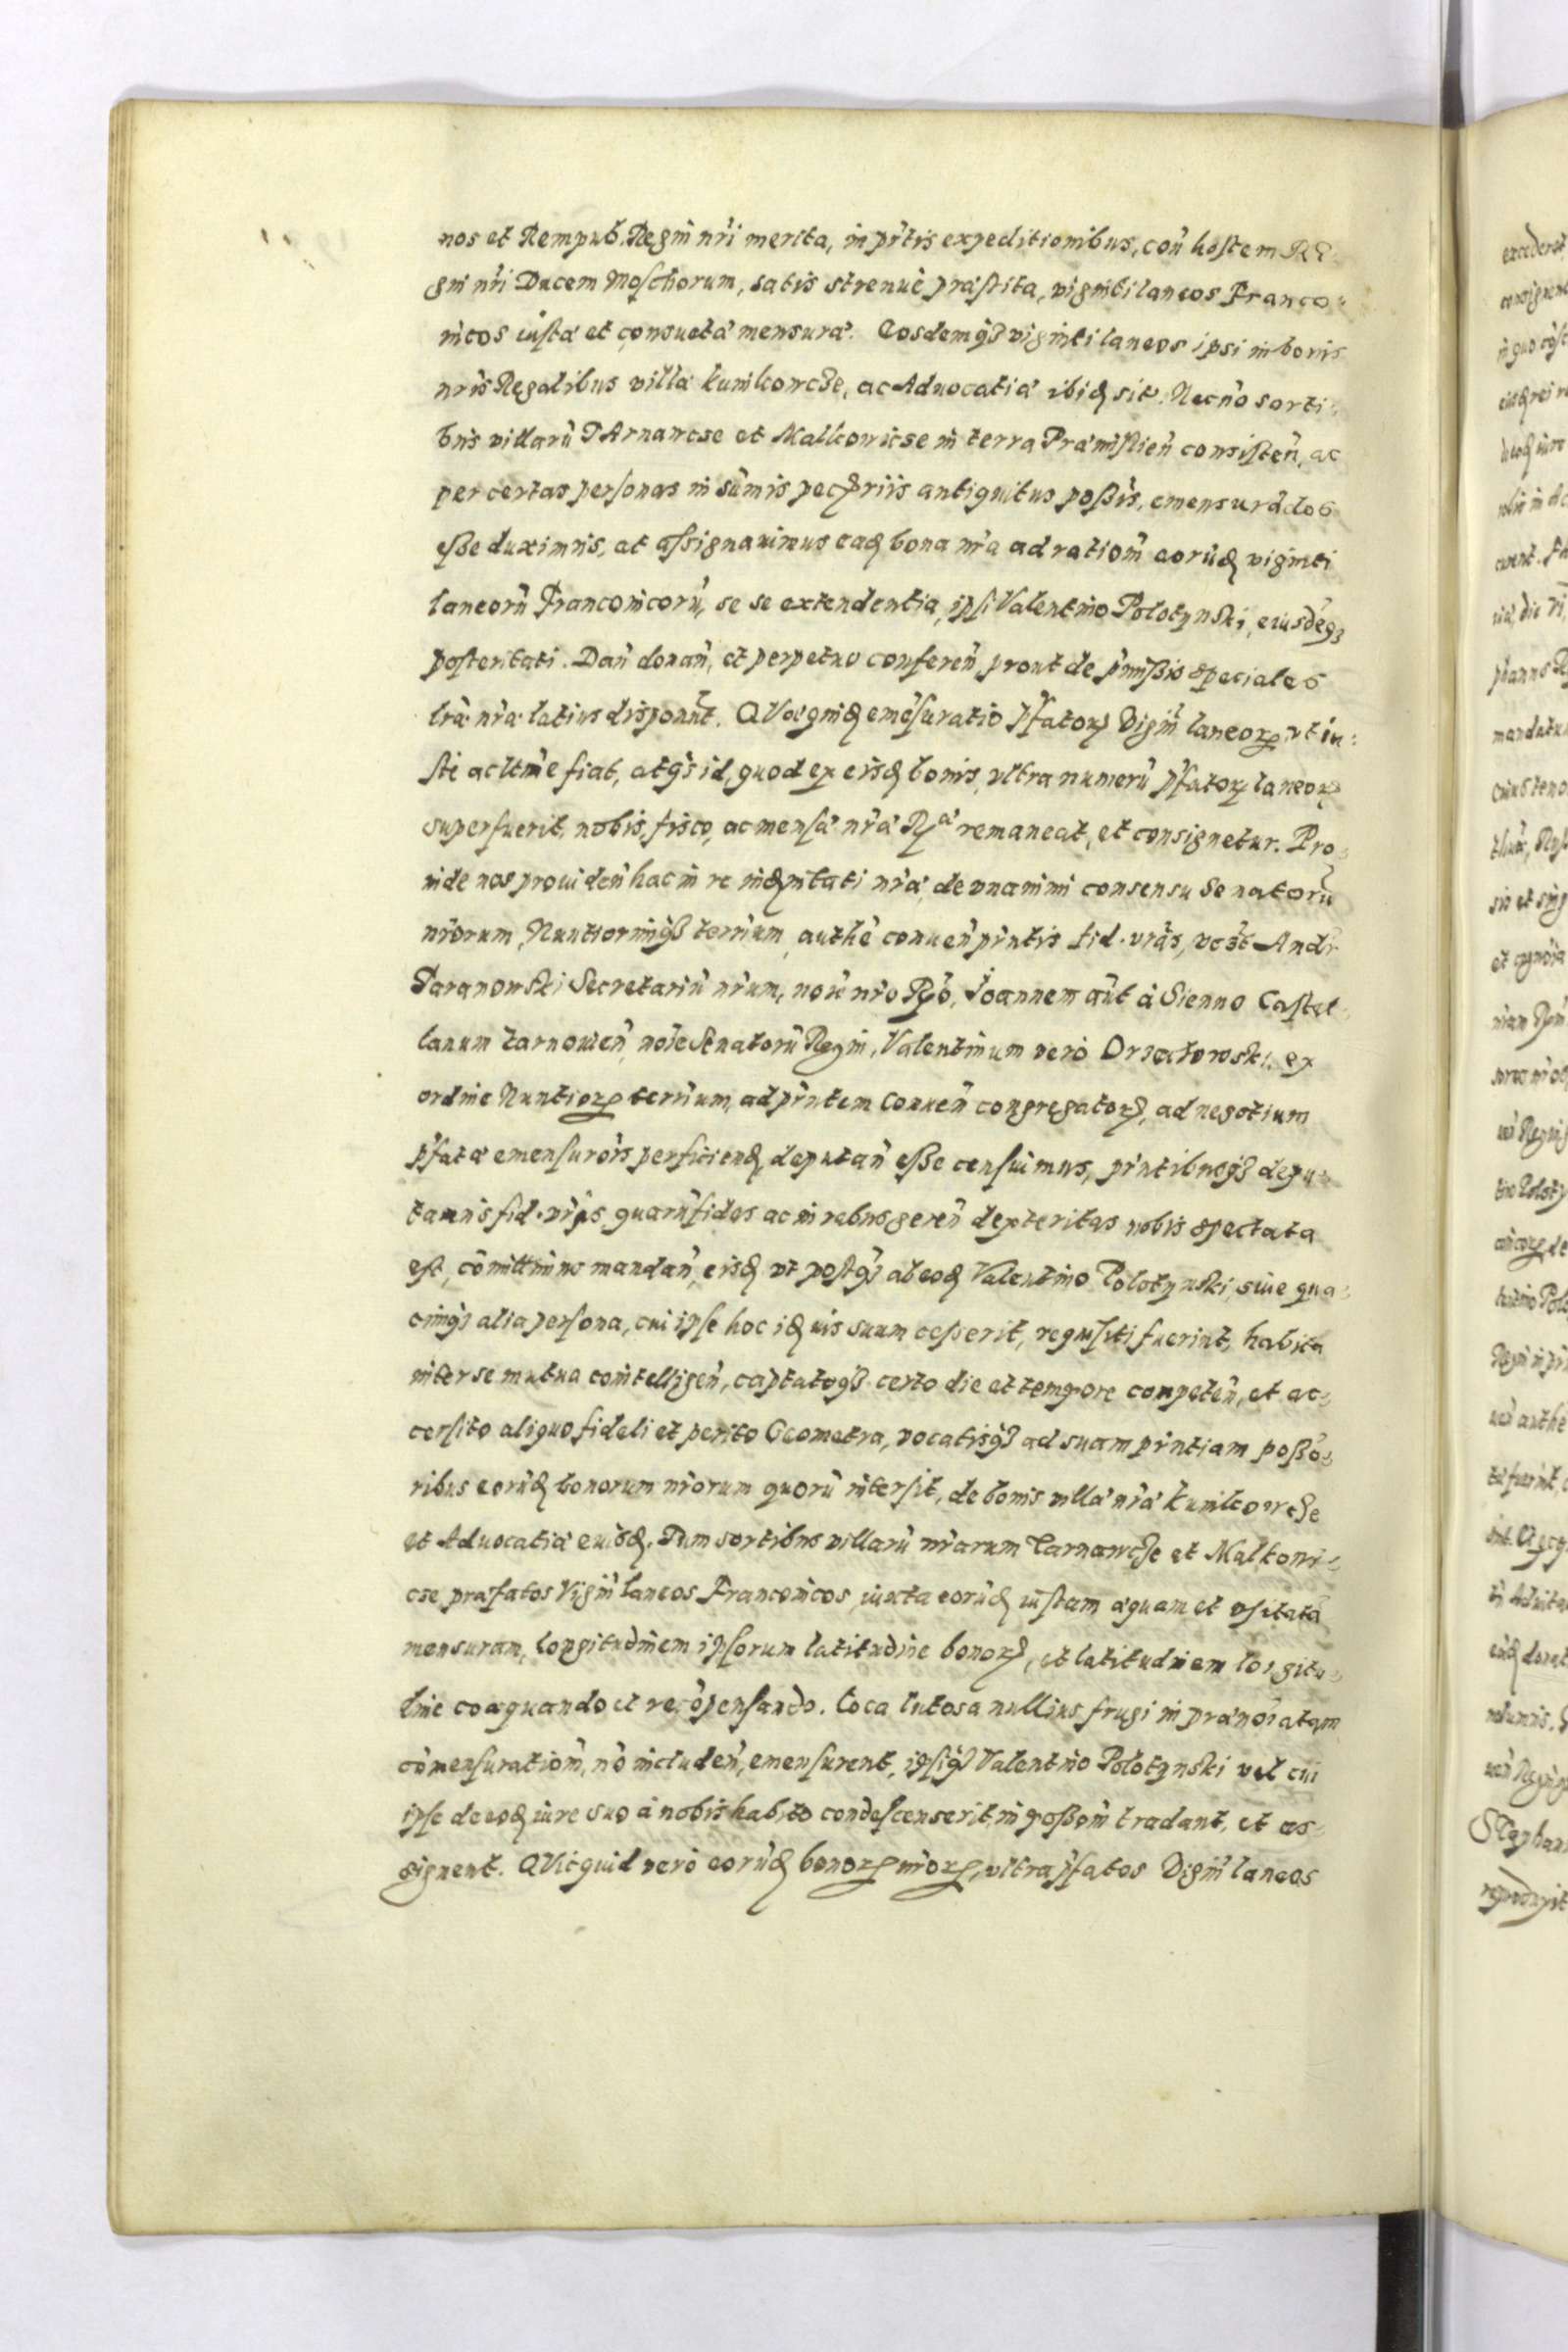 nos et Rempub. Regni nr̃i merita, in pñtis expeditionibus, con̄ hostem Re
gni nr̃i Ducem Moschorum, satis strenue præstita, viginti laneos Franco
nicos iustæ et consuetæ mensuræ. Eosdemq3 viginti laneos ipsi in bonis
nr̃is Regalibus villæ Kunkowcze, ac Aduocatiæ ibid̃ sit. Necnō sorti
bus villarū Tarnawcse et Malkowicse in terra Præmislien̄ consisten̄, ac
per certas personas in sūmis pec̃riis antiquitus poss̃is, emensurãdos
esse duximus, et assignauimus ead̃ bona nr̃a ad ratiom̃ eorūd̃ viginti
laneorū Franconicorū, se se extendentia, ipsi Valentino Polotynski, eiusdēq3
posteritati. Dan̄ donan̄, et perpetuo conferen̄, prout de p̃missis speciales
lr̃æ nr̃æ latius disponūt. QVæ quid̃ emēsuratio p̃fator̃ Vigin̄ laneor̃ vt iu=
ste ac ltm̃e fiat, atq3 id, quod ex eisd̃ bonis, vltra numerū p̃fator̃ laneor̃
superfuerit, nobis, fisco, ac mensæ nr̃æ Ryæ remaneat, et consignetur. Pro
inde nos prouiden̄ hac in re indẽnitati nr̃æ, de vnanimi consensu Senatorū
nr̃orum, Nuntiorumq3 terr̃um, auth̃e conuen̄ pñtis fid. vr̃as, vt3 Andr.
Taranowski Secretariū nr̃um, noĩe nr̃o Ryo, Joannem aũt à Sienno Castel
lanum tarnouien̄, noĩe Senatorū Regni, Valentinum verò Orzechowski, ex
ordine Nuntior̃ terr̃um, ad pñtem Conuen̄ congregator̃, ad negotium
p̃fatæ emensurõis perficiend̃ deputan̄ esse censuimus, pñtibusq3 depu
tamus fid. vr̃is, quarū fides ac in rebus geren̄ dexteritas nobis spectata
est, cōmittimus mandan̄, eisd̃ vt postq̃ ab eod̃ Valentino Polotynski, siue qua
cunq3 alia persona, cui ipse hoc id̃ ius suum cesserit, requisiti fuerint, habita
inter se mutua cointelligen̄, captatoq3 certo die et tempore conpeten̄, et ac
cersito aliquo fideli et perito Geometra, vocatisq3 ad suam pñtiam possō
ribus eorūd̃ bonorum nr̃orum quorū intersit, de bonis villæ nr̃æ Kunkowcze
et Aduocatiæ euisd̃. Tum sortibus villarū nr̃arum Tarnawcze et Malkowi
cse præfatos Vigin̄ laneos Franconicos, iuxta eorūd̃ iustam æquam et vsitatā
mensuram, longitudinem ipsorum latitudine bonor̃, et latitudinem longitu
dine coæquando et recōpensando. Loca lutosa nullius frugi in prænoĩatam
cōmensuratiom̃, nō includen̄, emensurent, ipsiq3 Valentino Polotynski vel cui
ipse de eod̃ iure suo à nobis habito condescenserit, in possom̃ tradant, et as
signent. QVicquid verò eorūd̃ bonor̃ nr̃or̃, vltra p̃fatos Vigin̄ laneos